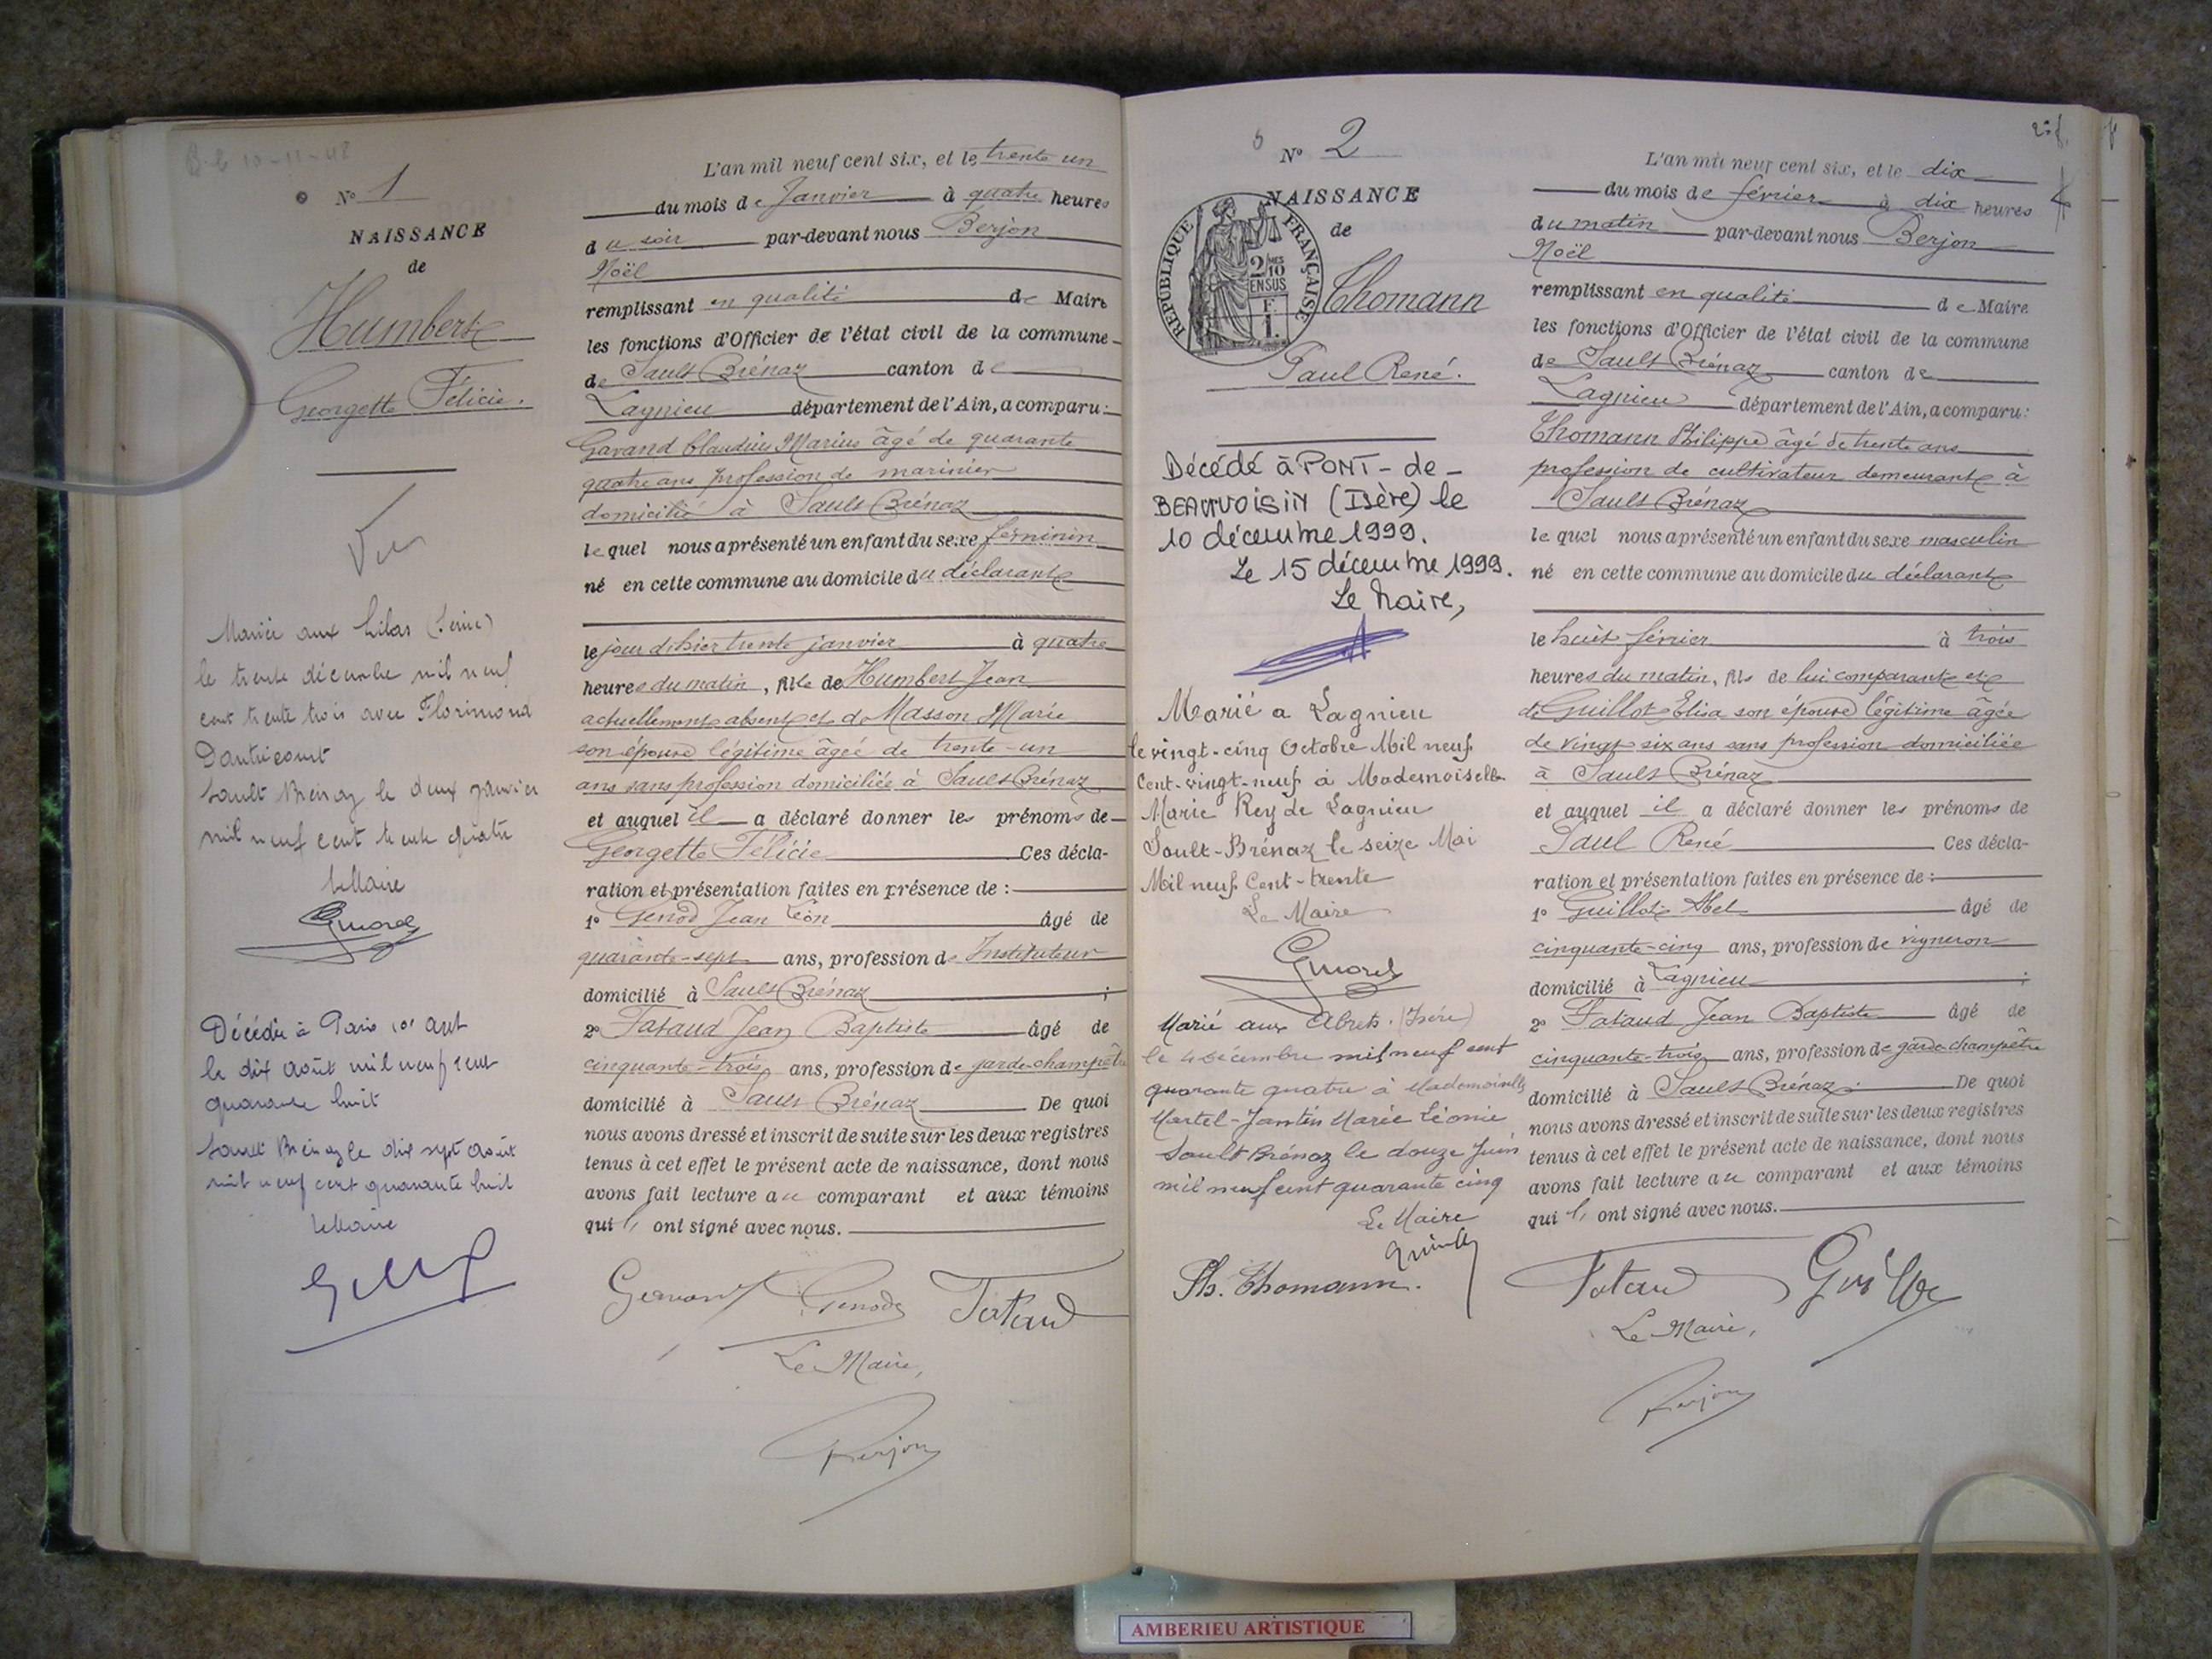 B-G 10-11-48
N° 1
NAISSANCE
de
Humbert
Georgette Félicie.
Vu
Mariée aux Lilas (Seine)
le trente décembre mil neuf
cent trente trois avec Florimond
Dautricourt
Sault Brénaz le deux janvier
mil neuf cent trente quatre
Le Maire
Décédée à Paris 10e arrt
le dix août mil neuf cent
quarante huit
Sault Brénaz le dix sept août
mil neuf cent quarante huit
Le Maire
L'an mil neuf cent six, et le trente un
du mois de Janvier à quatre heures
du soir par-devant nous Berjon
Noël
remplissant en qualité de Maire
les fonctions d'Officier de l'état civil de la commune
de Sault Brénaz canton de
Lagnieu département de l'Ain, a comparu:
Gavand Claudius Marius âgé de quarante
quatre ans profession de marinier
domicilié à Sault Brénaz
lequel nous a présenté un enfant du sexe féminin
né en cette commune au domicile du déclarant
le jour d'hier trente janvier à quatre
heures du matin, fille de Humbert Jean
actuellement absent et de Masson Marie
son épouse légitime âgée de trente-un
ans sans profession domiciliée à Sault Brénaz
et auquel il a déclaré donner les prénoms de
Georgette Félicie Ces décla-
ration et présentation faites en présence de :
1° Genod Jean Léon âgé de
quarante-sept ans, profession d' Instituteur
domicilié à Sault Brénaz ;
2° Tataud Jean Baptiste âgé de
cinquante-trois ans, profession de garde-champêtre
domicilié à Sault Brénaz De quoi
nous avons dressé et inscrit de suite sur les deux registres
tenus à cet effet le présent acte de naissance, dont nous
avons fait lecture au comparant et aux témoins
qui ont signé avec nous.
Genod Tataud
Le Maire,
Berjon
N° 2
NAISSANCE
de
REPUBLIQUE FRANÇAISE
2/10 EN SUS
F. 1.
Thomann
Paul René.
Décédé à PONT-de-
BEAUVOISIN (Isère) le
10 décembre 1999.
Le 15 décembre 1999.
Le Maire,
Marié a Lagnieu
le vingt-cinq Octobre Mil neuf
Cent-vingt-neuf à Mademoiselle
Marie Rey de Lagnieu
Sault-Brénaz le seize Mai
Mil neuf Cent-trente
Le Maire
Marié aux Abrets. (Isère)
le 4 décembre mil neuf cent
quarante quatre à Mademoiselle
Martel-Jantin Marie Léonie
Sault Brénaz le douze Juin
mil neuf cent quarante cinq
Le Maire
Ph. Thomann.
L'an mil neuf cent six, et le dix
du mois de février à dix heures
du matin par-devant nous Berjon
Noël
remplissant en qualité de Maire
les fonctions d'Officier de l'état civil de la commune
de Sault Brénaz canton de
Lagnieu département de l'Ain, a comparu:
Thomann Philippe âgé de trente ans
profession de cultivateur demeurant à
Sault Brénaz
lequel nous a présenté un enfant du sexe masculin
né en cette commune au domicile du déclarant
le huit février à trois
heures du matin, fils de lui comparant et
de Guillot Elisa son épouse légitime âgée
de vingt six ans sans profession domiciliée
à Sault Brénaz
et auquel il a déclaré donner les prénoms de
Paul René Ces décla-
ration et présentation faites en présence de :
1° Guillot Abel âgé de
cinquante-cinq ans, profession de vigneron
domicilié à Lagnieu ;
2° Tataud Jean Baptiste âgé de
cinquante-trois ans, profession de garde champêtre
domicilié à Sault Brénaz. De quoi
nous avons dressé et inscrit de suite sur les deux registres
tenus à cet effet le présent acte de naissance, dont nous
avons fait lecture au comparant et aux témoins
qui ont signé avec nous.
Tataud Guillot
Le Maire,
Berjon
AMBERIEU ARTISTIQUE